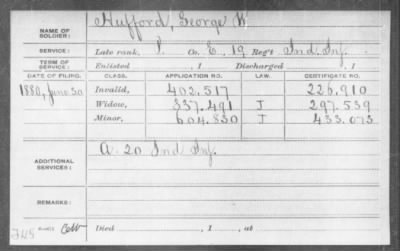 Hufford, George W
NAME OF SOLDIER:
SERVICE: Late rank, P. Co. E, 19 Reg't Ind. Inf.
TERM OF SERVICE: Enlisted , 1 Discharged , 1
DATE OF FILING. CLASS. APPLICATION NO. LAW. CERTIFICATE NO.
1880, June 30 Invalid, 402.517 226,910
Widow, 337.491 J 297.539
Minor, 604.830 J 433.073
ADDITIONAL SERVICES: A. 20 Ind Inf.
REMARKS:
Died , 1 , at